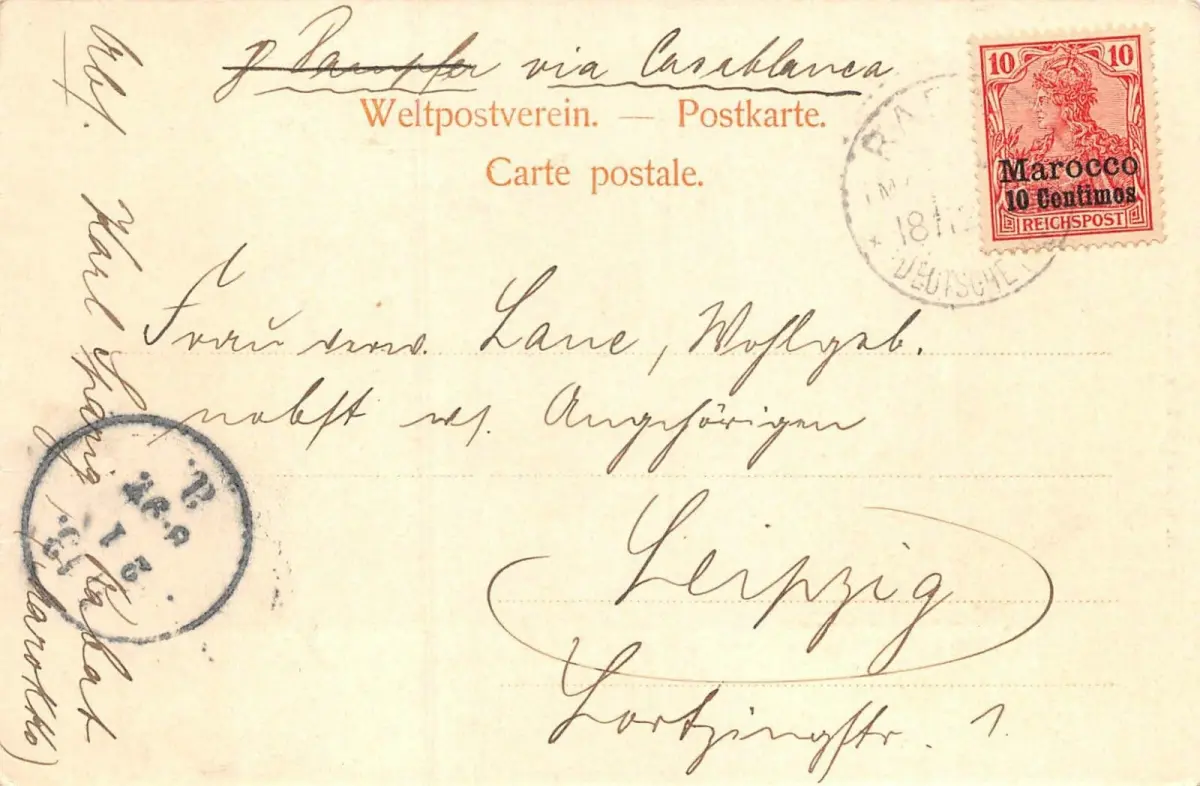 p Dampfer via Casablanca
Weltpostverein. — Postkarte.
Carte postale.
10 10
Marocco
10 Centimos
REICHSPOST
DEUTSCHE
Frau verw. Lane, Wohlgeb.
nebst w. Angehörigen
Leipzig
Lortzingstr. 1.
Abs. Karl
Rabat
(Marokko)